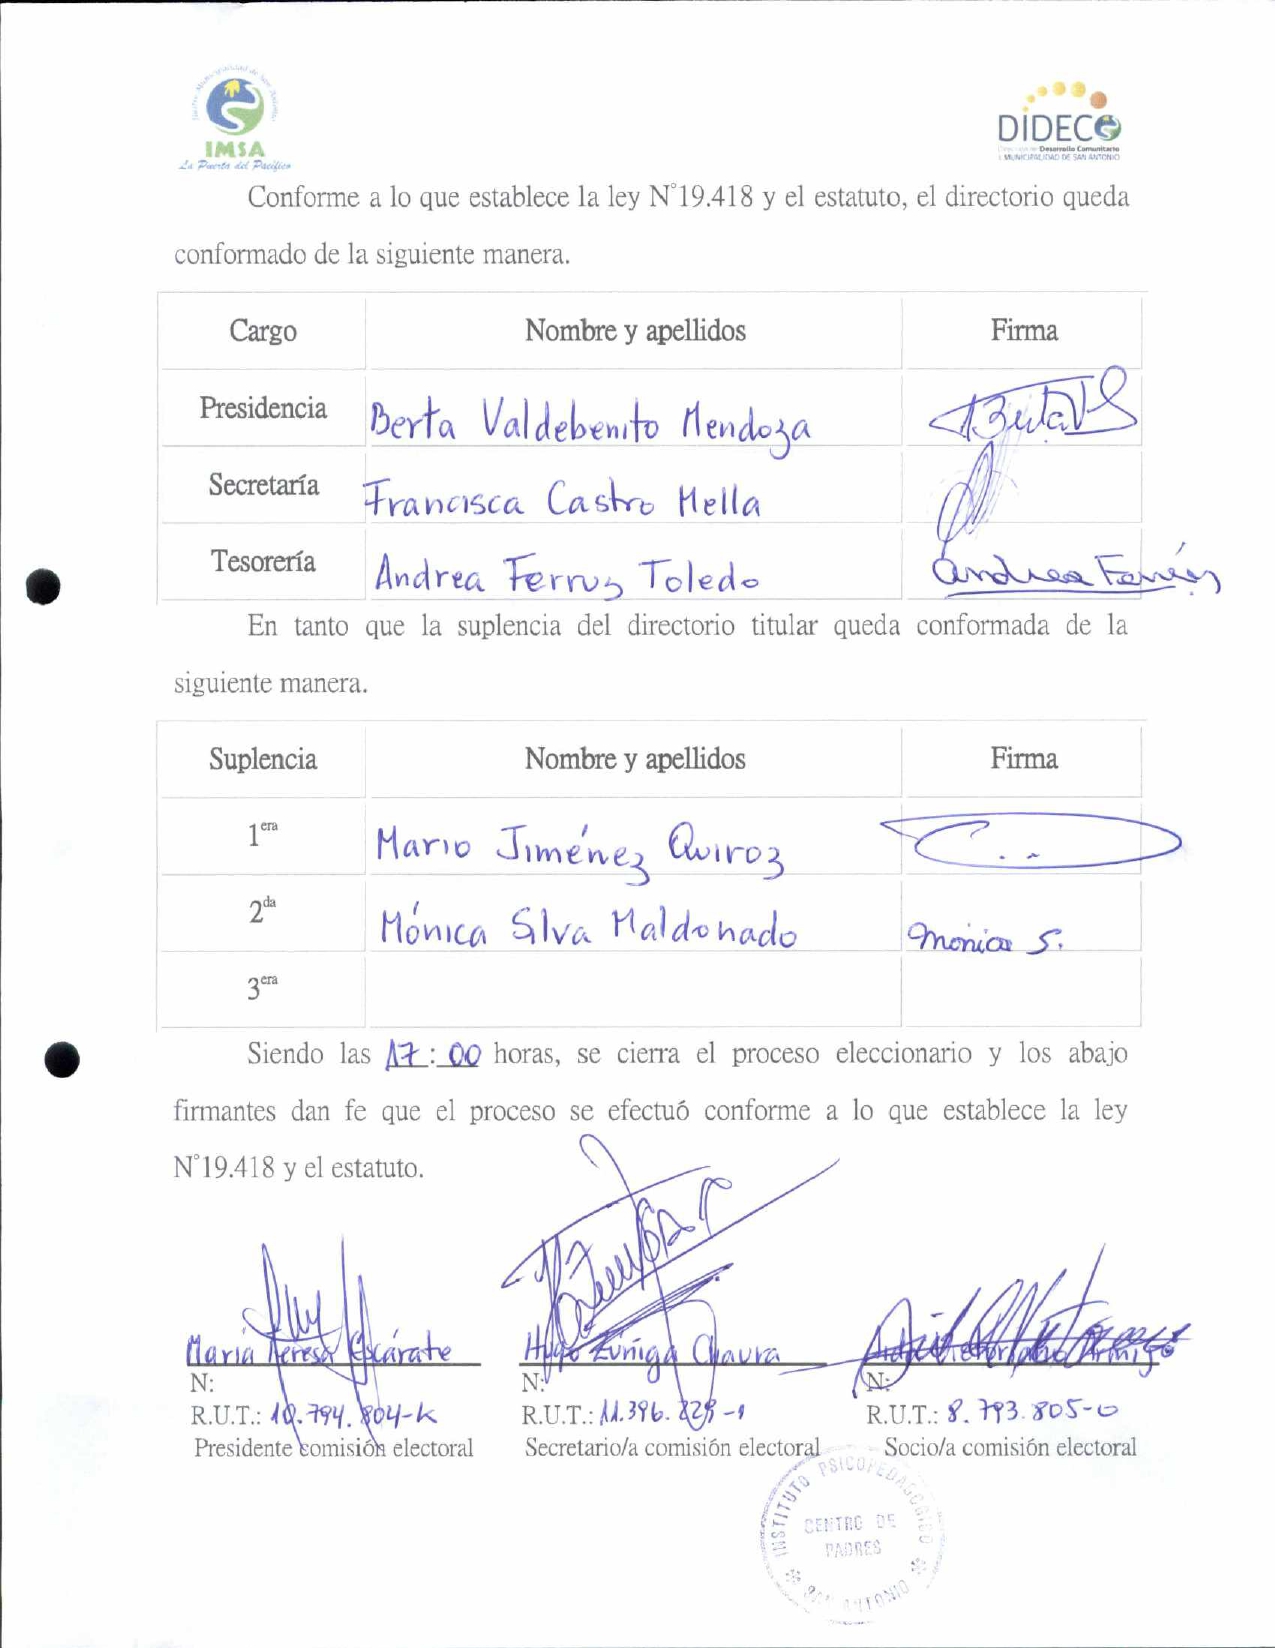 IMSA
La Puerta del Pacífico
DIDECO
Desarrollo Comunitario
I. MUNICIPALIDAD DE SAN ANTONIO
Conforme a lo que establece la ley N°19.418 y el estatuto, el directorio queda
conformado de la siguiente manera.
Cargo Nombre y apellidos Firma
Presidencia Berta Valdebenito Mendoza
Secretaría Francisca Castro Mella
Tesorería Andrea Ferruz Toledo Andrea
En tanto que la suplencia del directorio titular queda conformada de la
siguiente manera.
Suplencia Nombre y apellidos Firma
1era Mario Jiménez Quiroz
2da Mónica Silva Maldonado Monica S.
3era
Siendo las 17:00 horas, se cierra el proceso eleccionario y los abajo
firmantes dan fe que el proceso se efectuó conforme a lo que establece la ley
N°19.418 y el estatuto.
María Teresa Escárate Hugo Zúñiga Chaura
N: N: N:
R.U.T.: 10.794.804-K R.U.T.: R.U.T.: 8.793.805-0
Presidente comisión electoral Secretario/a comisión electoral Socio/a comisión electoral
INSTITUTO PSICOPEDAGOGICO
CENTRO DE
PADRES
SAN ANTONIO